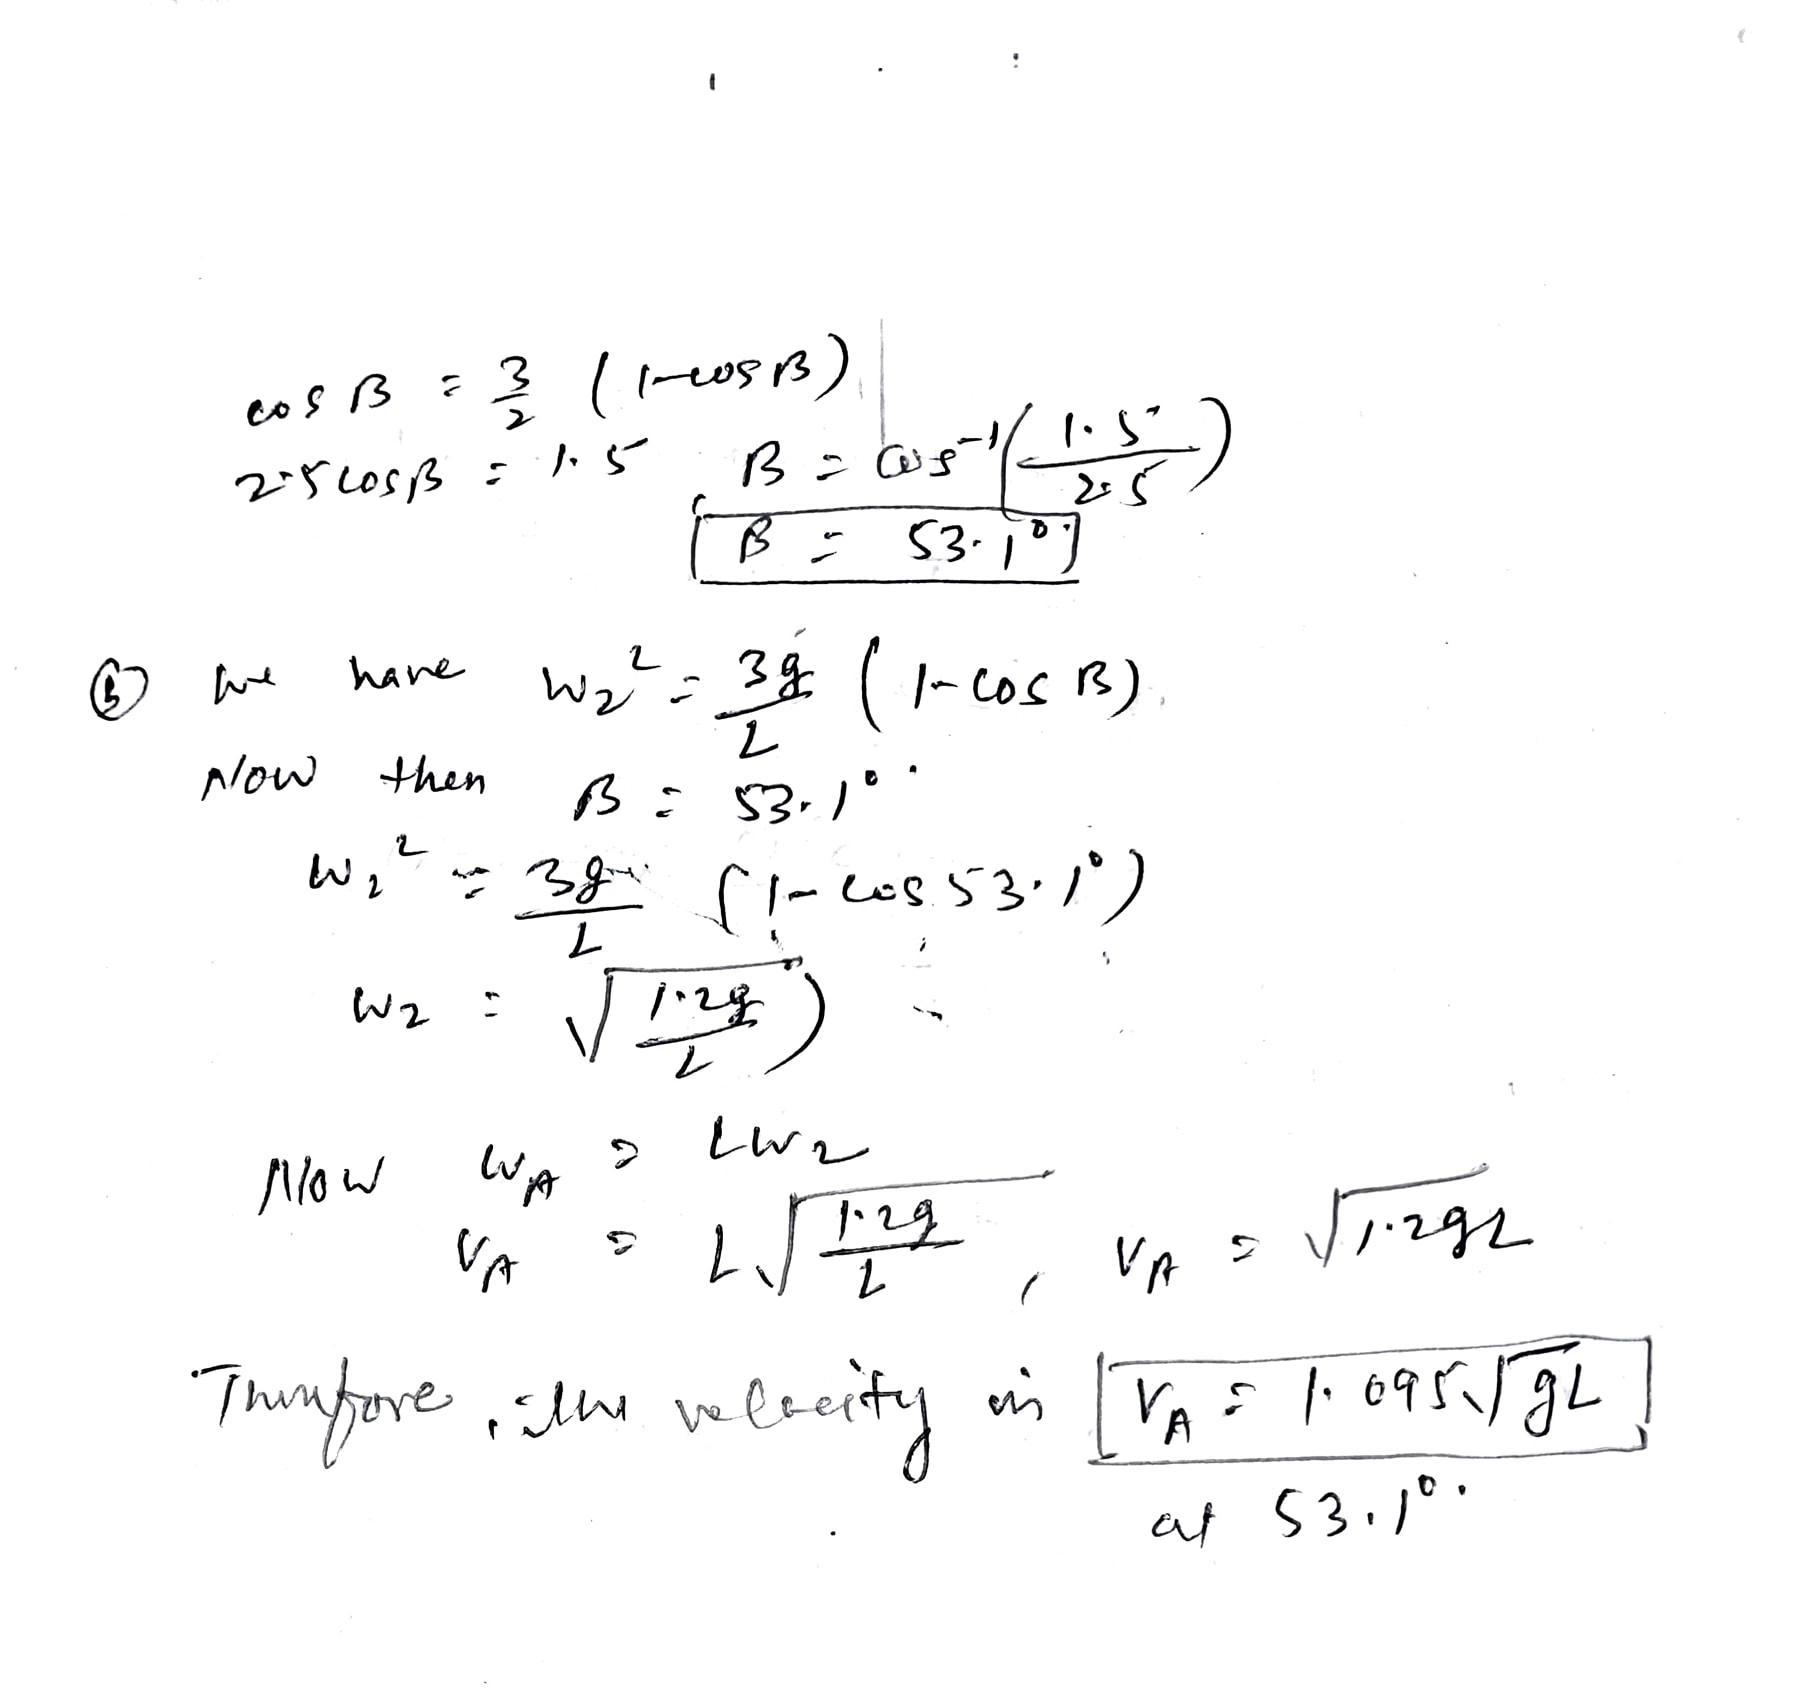 cos B = 3/2 (1-cos B)
2.5 cos B = 1.5 , B = cos⁻¹(1.5/2.5)
B = 53.1°
ⓑ we have w₂² = 3g/L (1-cos B)
Now then B = 53.1°
w₂² = 3g/L (1-cos 53.1°)
w₂ = √(1.2g/L)
Now wA = Lw₂
vA = L√(1.2g/L) , vA = √1.2gL
Therefore, the velocity is VA = 1.095√gL
at 53.1°.